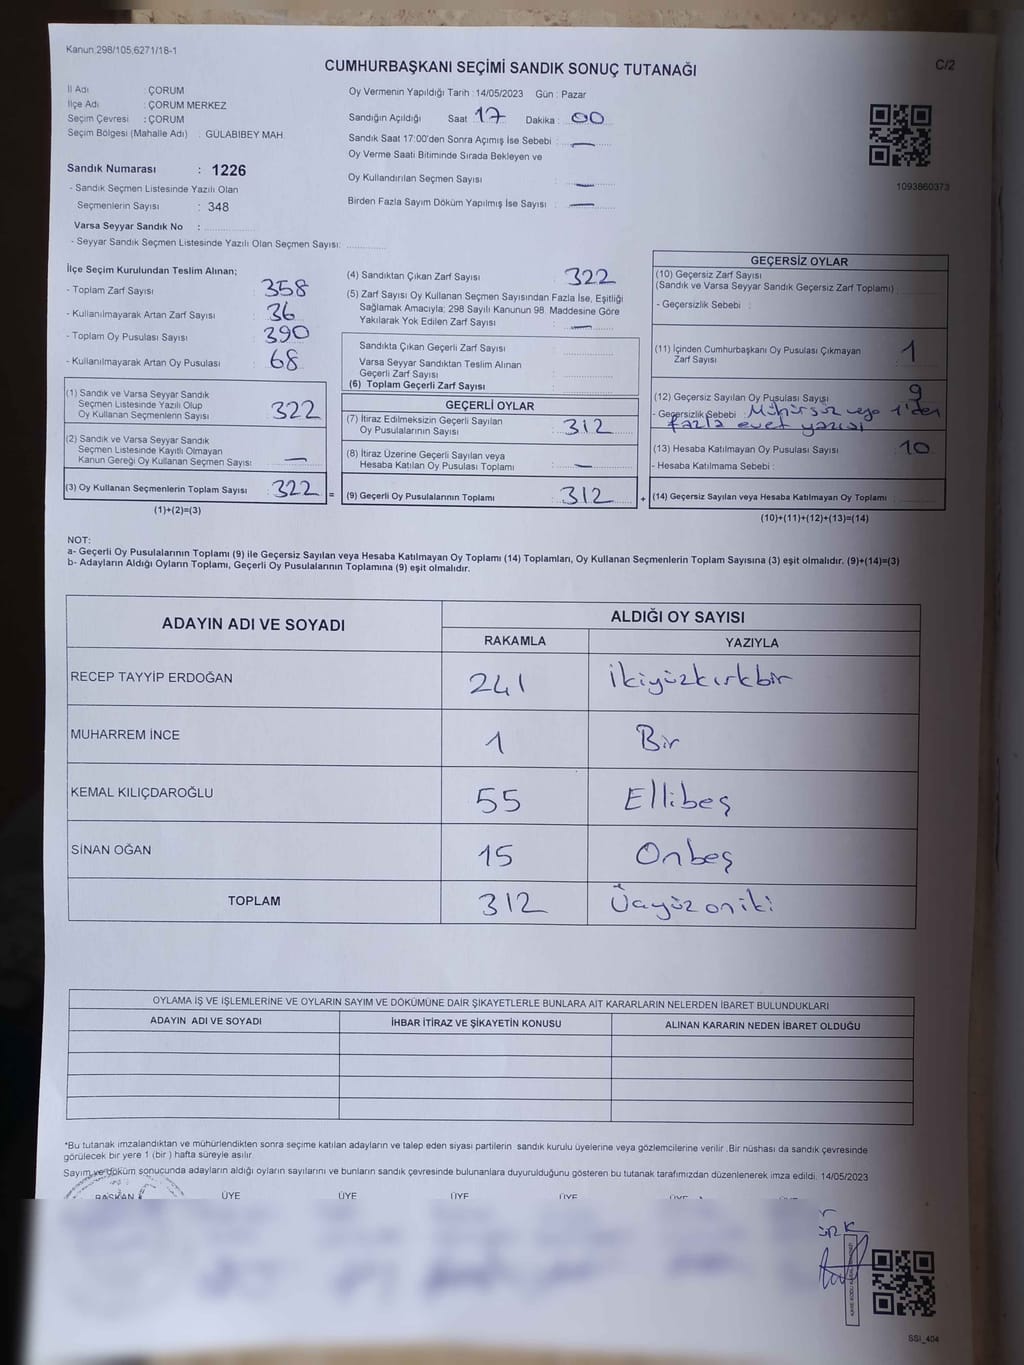 Kanun 298/105,6271/18-1
C/2
CUMHURBAŞKANI SEÇİMİ SANDIK SONUÇ TUTANAĞI
İl Adı : ÇORUM
İlçe Adı : ÇORUM MERKEZ
Seçim Çevresi : ÇORUM
Seçim Bölgesi (Mahalle Adı) : GÜLABİBEY MAH.
Sandık Numarası : 1226
- Sandık Seçmen Listesinde Yazılı Olan
Seçmenlerin Sayısı : 348
Varsa Seyyar Sandık No :
- Seyyar Sandık Seçmen Listesinde Yazılı Olan Seçmen Sayısı:
Oy Vermenin Yapıldığı Tarih : 14/05/2023 Gün : Pazar
Sandığın Açıldığı Saat : 17 Dakika : 00
Sandık Saat 17:00'den Sonra Açımış İse Sebebi : —
Oy Verme Saati Bitiminde Sırada Bekleyen ve
Oy Kullandırılan Seçmen Sayısı : —
Birden Fazla Sayım Döküm Yapılmış İse Sayısı : —
1093860373
İlçe Seçim Kurulundan Teslim Alınan;
- Toplam Zarf Sayısı : 358
- Kullanılmayarak Artan Zarf Sayısı : 36
- Toplam Oy Pusulası Sayısı : 390
- Kullanılmayarak Artan Oy Pusulası : 68
(1) Sandık ve Varsa Seyyar Sandık
Seçmen Listesinde Yazılı Olup
Oy Kullanan Seçmenlerin Sayısı : 322
(2) Sandık ve Varsa Seyyar Sandık
Seçmen Listesinde Kayıtlı Olmayan
Kanun Gereği Oy Kullanan Seçmen Sayısı : —
(3) Oy Kullanan Seçmenlerin Toplam Sayısı : 322 =
(1)+(2)=(3)
(4) Sandıktan Çıkan Zarf Sayısı : 322
(5) Zarf Sayısı Oy Kullanan Seçmen Sayısından Fazla İse, Eşitliği
Sağlamak Amacıyla; 298 Sayılı Kanunun 98. Maddesine Göre
Yakılarak Yok Edilen Zarf Sayısı : —
Sandıkta Çıkan Geçerli Zarf Sayısı :
Varsa Seyyar Sandıktan Teslim Alınan
Geçerli Zarf Sayısı :
(6) Toplam Geçerli Zarf Sayısı :
GEÇERLİ OYLAR
(7) İtiraz Edilmeksizin Geçerli Sayılan
Oy Pusulalarının Sayısı : 312
(8) İtiraz Üzerine Geçerli Sayılan veya
Hesaba Katılan Oy Pusulası Toplamı : —
(9) Geçerli Oy Pusulalarının Toplamı : 312 +
GEÇERSİZ OYLAR
(10) Geçersiz Zarf Sayısı
(Sandık ve Varsa Seyyar Sandık Geçersiz Zarf Toplamı) :
- Geçersizlik Sebebi :
(11) İçinden Cumhurbaşkanı Oy Pusulası Çıkmayan
Zarf Sayısı : 1
(12) Geçersiz Sayılan Oy Pusulası Sayısı : 9
- Geçersizlik Sebebi : Mühürsüz veya 1'den
fazla evet yazısı
(13) Hesaba Katılmayan Oy Pusulası Sayısı : 10
- Hesaba Katılmama Sebebi :
(14) Geçersiz Sayılan veya Hesaba Katılmayan Oy Toplamı :
(10)+(11)+(12)+(13)=(14)
NOT:
a- Geçerli Oy Pusulalarının Toplamı (9) ile Geçersiz Sayılan veya Hesaba Katılmayan Oy Toplamı (14) Toplamları, Oy Kullanan Seçmenlerin Toplam Sayısına (3) eşit olmalıdır. (9)+(14)=(3)
b- Adayların Aldığı Oyların Toplamı, Geçerli Oy Pusulalarının Toplamına (9) eşit olmalıdır.
ADAYIN ADI VE SOYADI ALDIĞI OY SAYISI
RAKAMLA YAZIYLA
RECEP TAYYİP ERDOĞAN 241 İkiyüzkırkbir
MUHARREM İNCE 1 Bir
KEMAL KILIÇDAROĞLU 55 Ellibeş
SİNAN OĞAN 15 Onbeş
TOPLAM 312 Üçyüzoniki
OYLAMA İŞ VE İŞLEMLERİNE VE OYLARIN SAYIM VE DÖKÜMÜNE DAİR ŞİKAYETLERLE BUNLARA AİT KARARLARIN NELERDEN İBARET BULUNDUKLARI
ADAYIN ADI VE SOYADI İHBAR İTİRAZ VE ŞİKAYETİN KONUSU ALINAN KARARIN NEDEN İBARET OLDUĞU
*Bu tutanak imzalandıktan ve mühürlendikten sonra seçime katılan adayların ve talep eden siyasi partilerin sandık kurulu üyelerine veya gözlemcilerine verilir. Bir nüshası da sandık çevresinde
görülecek bir yere 1 (bir ) hafta süreyle asılır.
Sayım ve döküm sonucunda adayların aldığı oyların sayılarını ve bunların sandık çevresinde bulunanlara duyurulduğunu gösteren bu tutanak tarafımızdan düzenlenerek imza edildi. 14/05/2023
BAŞKAN ÜYE ÜYE ÜYE ÜYE ÜYE ÜYE
SSİ_404